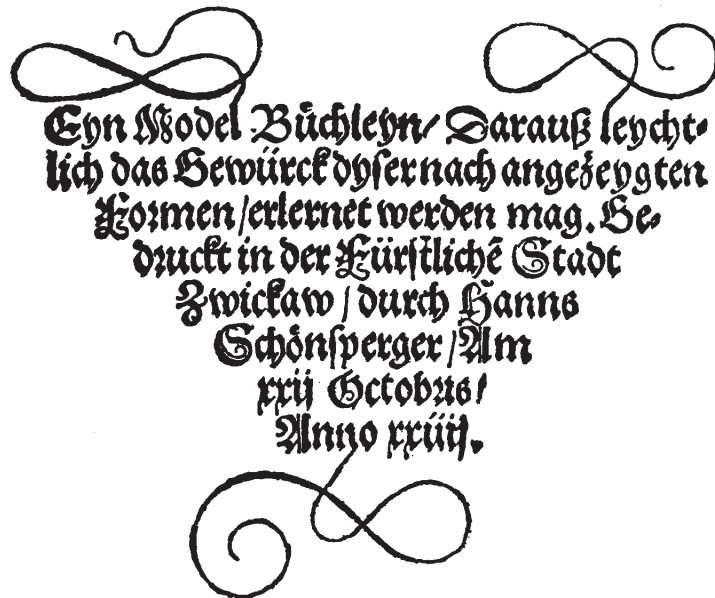 Eyn Model Bůchleyn/ Darauß leycht-
lich das Gewürck dyser nach angezeygten
Formen/erlernet werden mag. Ge-
druckt in der Fürstlichē Stadt
Zwickaw / durch Hanns
Schönsperger / Am
xxij Octobris/
Anno xxiiij.